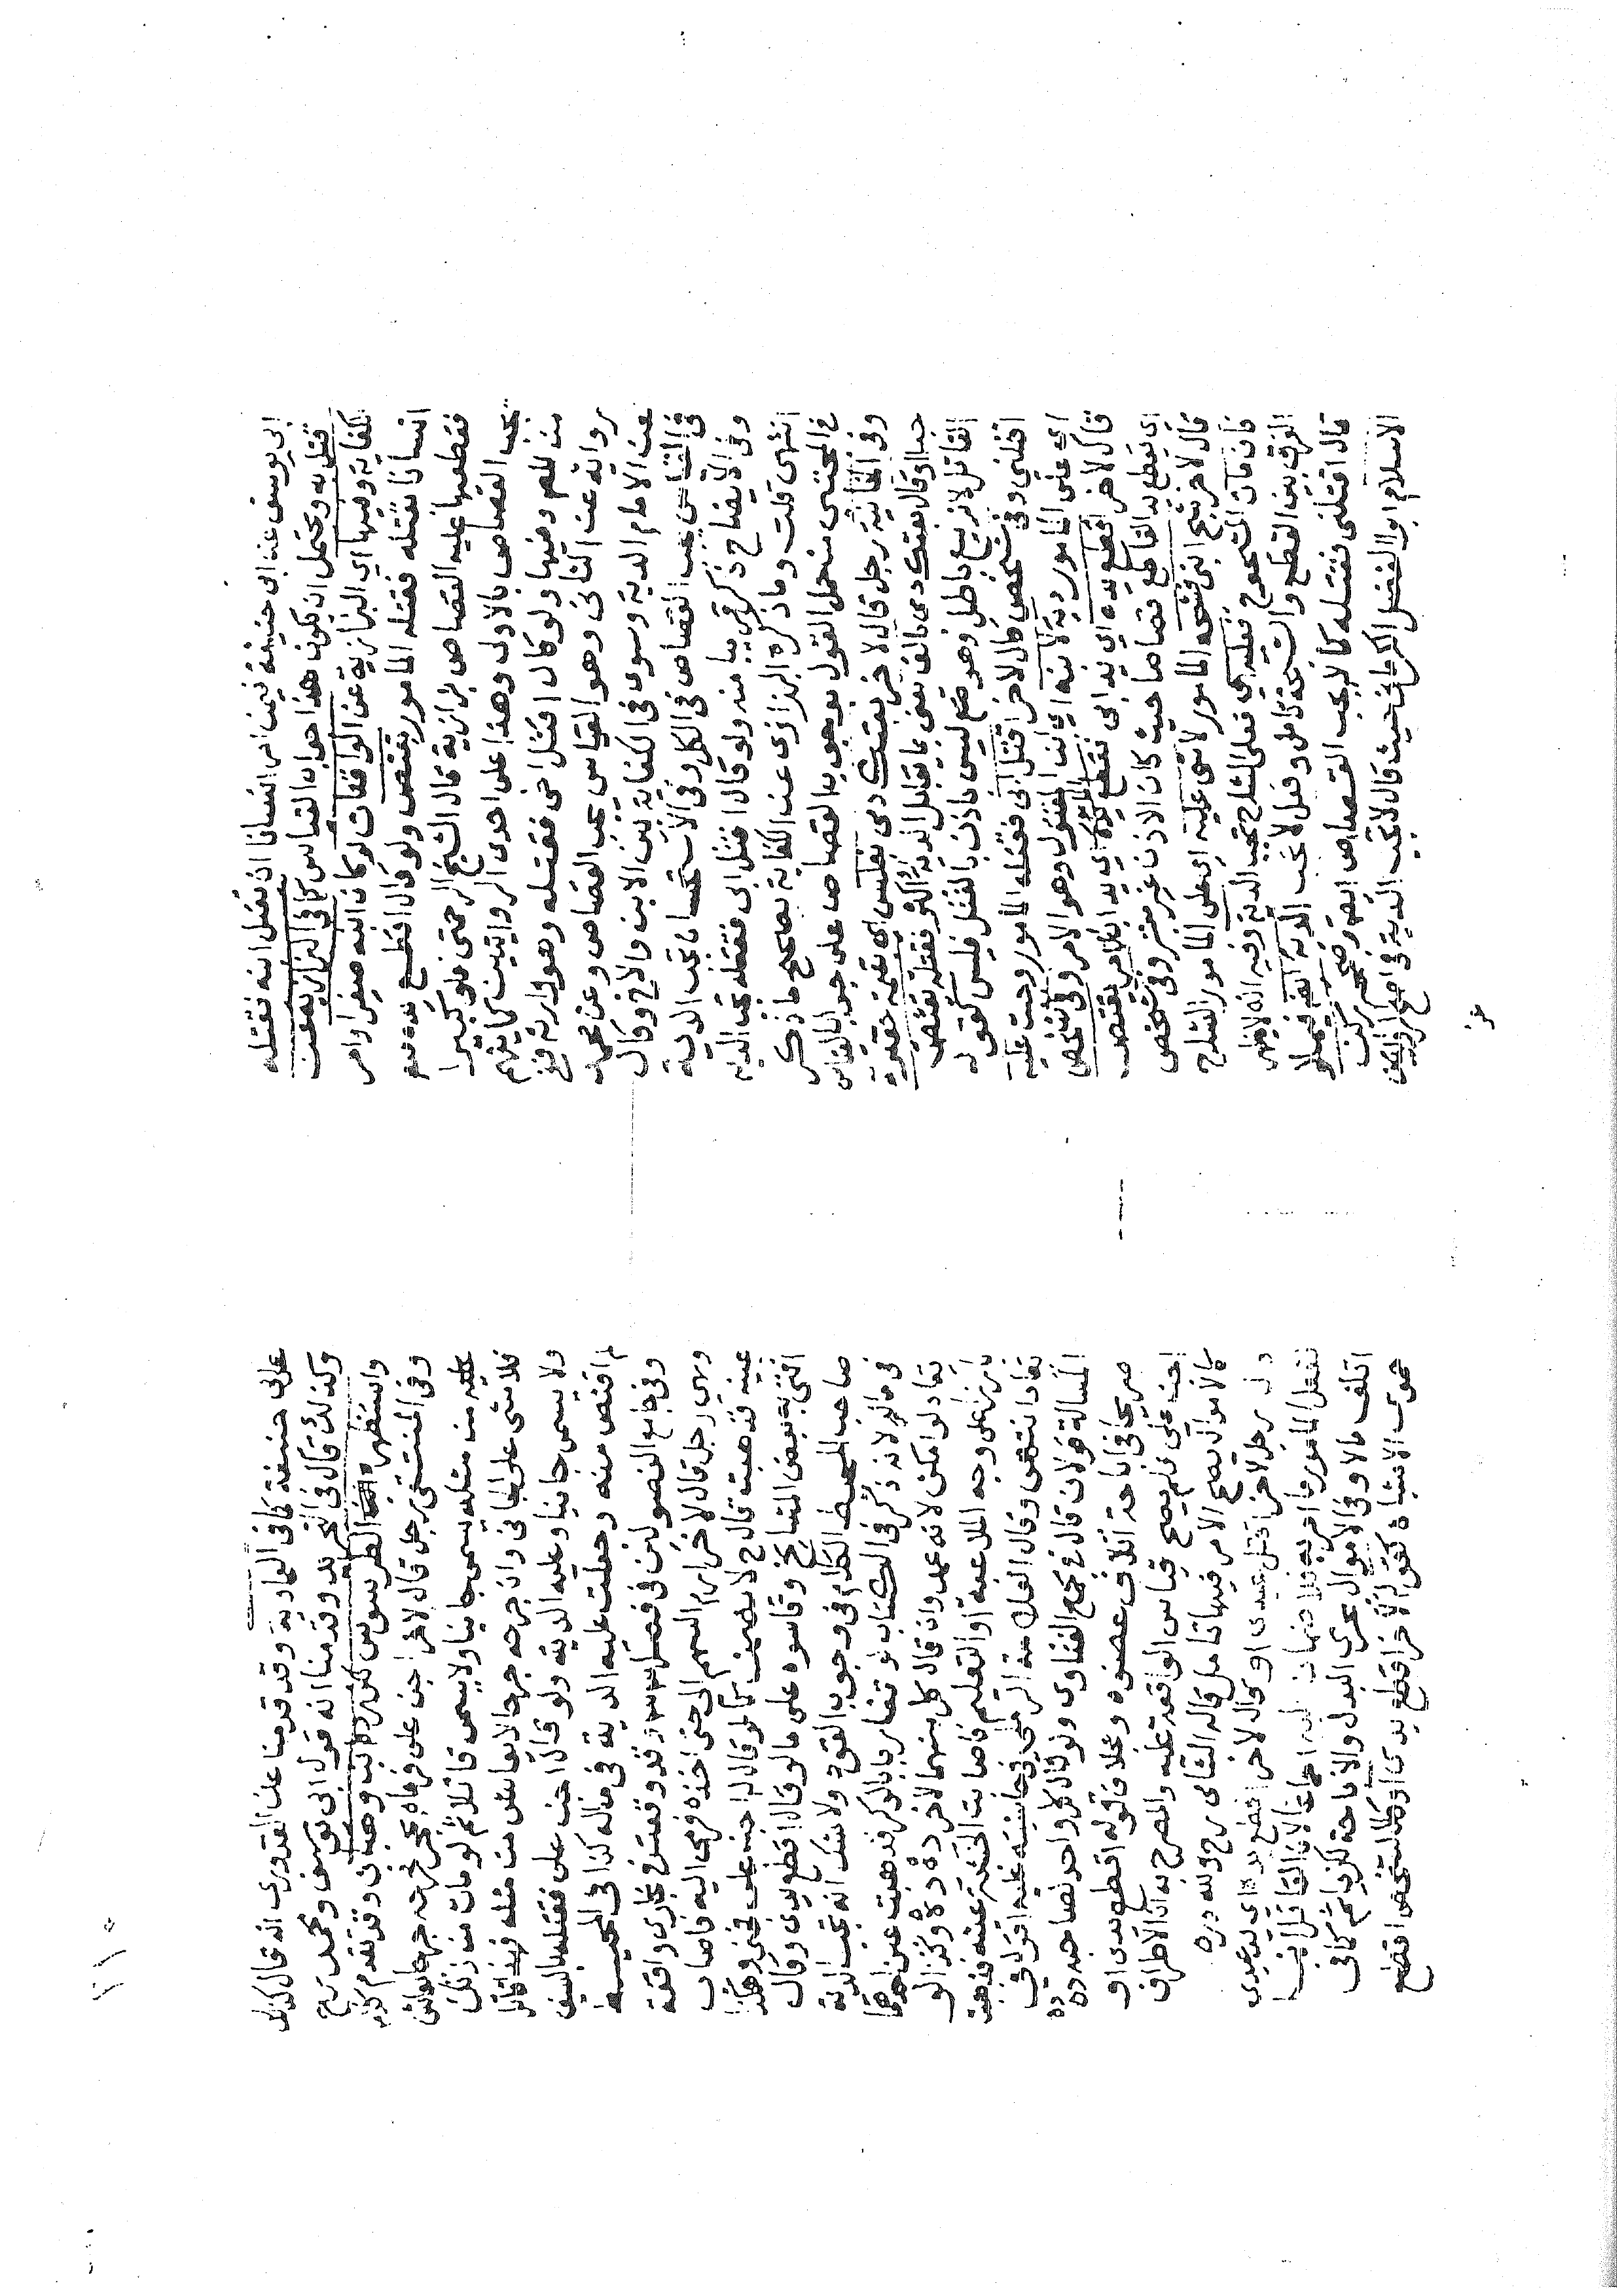 ابى يوسف عن ابى حنيفة فيمن امر انسانا ان يقتل ابنه فقتله
قتل به ويحتمل ان يكون هذا جواب القياس كما فى البزازية عن
الكفاية وفيها اي البزازية عن الواقعات لو كان ابنه صغيرا وامر
انسانا بقتله فقتله المامور يقتص ولو قال اقطع يده
فقطعها عليه القصاص بزازية قال الشيخ الرحمتى فلو كبيرا
يجب القصاص بالاولى وهذا على احدى الروايتين كما يفهم
من المنح وفيها ولو قال اقتل اخى فقتله وهو وارثه ففى
رواية عن الثانى وهو القياس يجب القصاص وعن محمد
عن الامام الدية وسوى فى الكفاية بين الابن والاخ وقال
فى القياس يجب القصاص فى الكل وفى الاستحسان تجب الدية
وفى الايضاح ذكر قريبا منه ولو قال اقتل ابى فقتله تجب الدية
انتهى قلت وما ذكره البزازى عن الكفاية يصحح ما ذكر
فى المجتبى من حمل القول بوجوب القصاص على جواب القياس
وفى الخانية رجل قال لاخر بعتك دمى بفلس اى بقيمة حقيرة
جدا او قال بعتك دمى بالف يعنى بما يقابل الدية او اكثر فقتله يقتص
القاتل لانه بيع باطل وهو ح ليس باذن بالقتل فليس كقوله
اقتلنى وفى شخص قال لاخر اقتل ابى فقتله المامور وجبت عليه
اى على المامور دية لابنه اى ابن المقتول وهو الامر وفى شخص
قال لاخر اقطع يده اى يد ابى فقطع يده اى يد ابى الامر يقتص
اى يقطع يد القاطع قصاصا حيث كان الاذن غير معتبر وفى شخص
قال لاخر شج ابنى فشجه المامور لا شى عليه اى على المامور الشاج
فان مات المشجوج فعليه اى فعلى الشاج تجب الدية وفيه انه لا يظهر
الفرق بين القطع والشجة تامل وقيل لا تجب الدية ايضا فيما لو
قال اقتلنى فقتله كما لا يجب القصاص ايضا وصححه ركن
الاسلام ابو الفضل الكرمانى حيث قال لا تجب الدية فى اصح الروايتين
عن
١١٠
عن ابى حنيفة كما فى العمادية وقد قدمنا عن القدورى انه قال كذلك
وكذلك قال فى التجريد وقدمنا انه قول ابى يوسف ومحمد رح
واستظهره الطرسوسى لكن رده ابن وهبان وقد تقدم كلامه
وفى المنتقى رجل قال لاخر اجن على فرماه بحجر فجرحه جرحا يعاش
من مثله يسمى جانيا ولا يسمى قاتلا ثم لو مات من ذلك
فلا شى على الجانى وان جرحه جرحا لا يعاش من مثله فهو قاتل
ولا يسمى جانيا وعليه الدية ولو قال اجن على فقتله بالسيف
لم اقتص منه وجعلت عليه الدية فى ماله كذا فى المحيط
وفى جامع الفصولين فى فصل ٣٣ وقد وقعت فى بخارى واقعة
وهى رجل قال لاخر ارم السهم الى حتى اخذه فرمى اليه فاصاب
عينه فذهبت قال ح لا يضمن كما لو قال له اجن على فجنى وهكذا
افتى به بعض المشايخ وقاسوه على ما لو قال اقطع يدى وقال
صاحب المحيط الكلام فى وجوب القود ولا شك انه تجب الدية
فى ماله لانه ذكر فى الكتاب لو تضاربا بالوكز فذهبت عين احدهما
يقاد لو امكن لانه عمد وان قال كل منهما للاخر ده ده وكذا لو
بارزا على وجه الملاعبة او التعليم فاصابت الخشبة عينه فذهبت
يقاد انتهى وقال العلامة الرملى فى حاشيته عليه اقول فى
المسالة قولان قال فى مجمع الفتاوى ولو قال كل واحد لصاحبه ده ده
صريحا فى اباحة اتلاف عضوه وبخلاف قوله اقطع يدى او
اجن على فلم يصح قياس الواقعة عليه والمصرح به ان الاطراف
كالاموال يصح الامر فيها تامل قاله الشامى رح ولله دره
رجل لاخر اقتل عبدى او قال لاخر اقطع يده اى يد عبدى
ففعل المامور ما امر به فلا ضمان اجماعا لان القاتل ايضا
اتلف مالا وفى الاموال يجرى البدل والاباحة لكن ياثم كما فى
حموى الاشباه كقوله لاخر اقطع يدى او اقطع